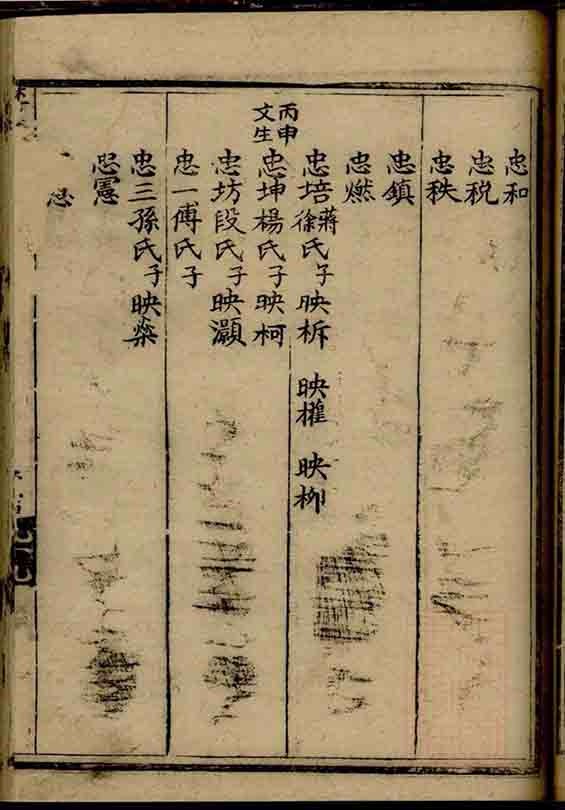 忠和
忠税
忠秩
忠鎮
忠燃
忠培蔣徐氏子映柝 映權 映柳
丙申文生
忠坤楊氏子映柯
忠坊段氏子映灝
忠一傅氏子
忠三孫氏子映橤
忠憲
忠